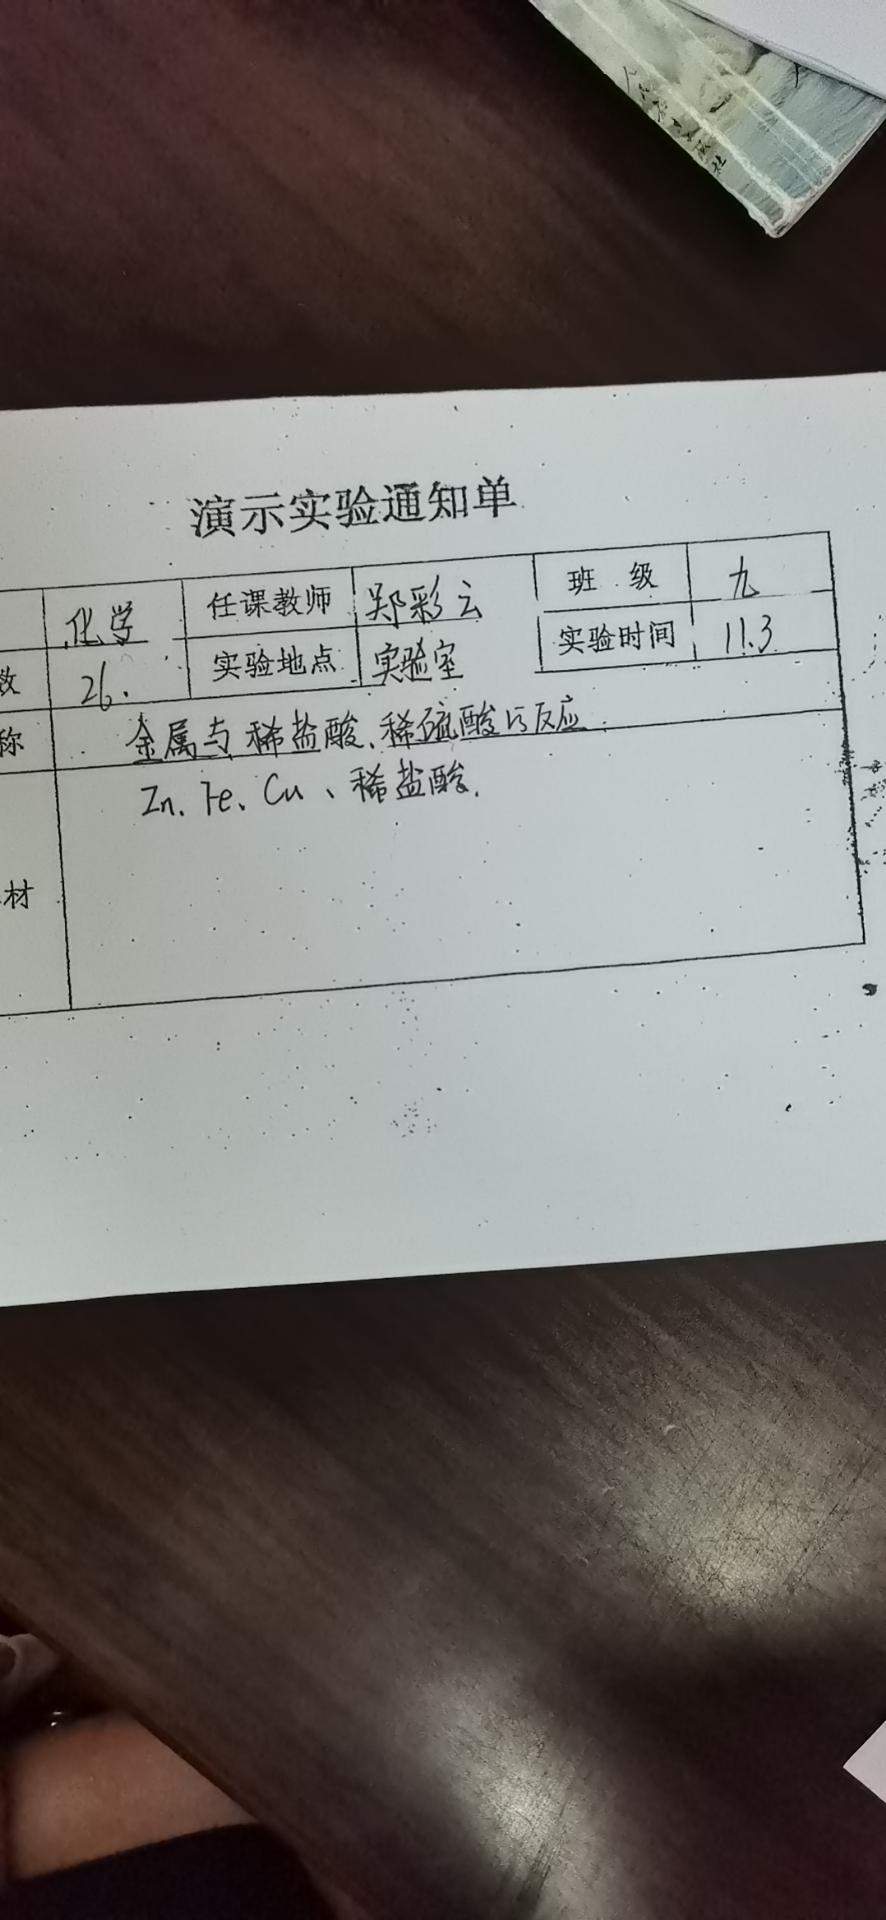 人民教育出版社
演示实验通知单
化学 任课教师 郑彩云 班 级 九
数 26. 实验地点 实验室 实验时间 11.3
称 金属与稀盐酸、稀硫酸的反应
Zn、Fe、Cu、稀盐酸.
材